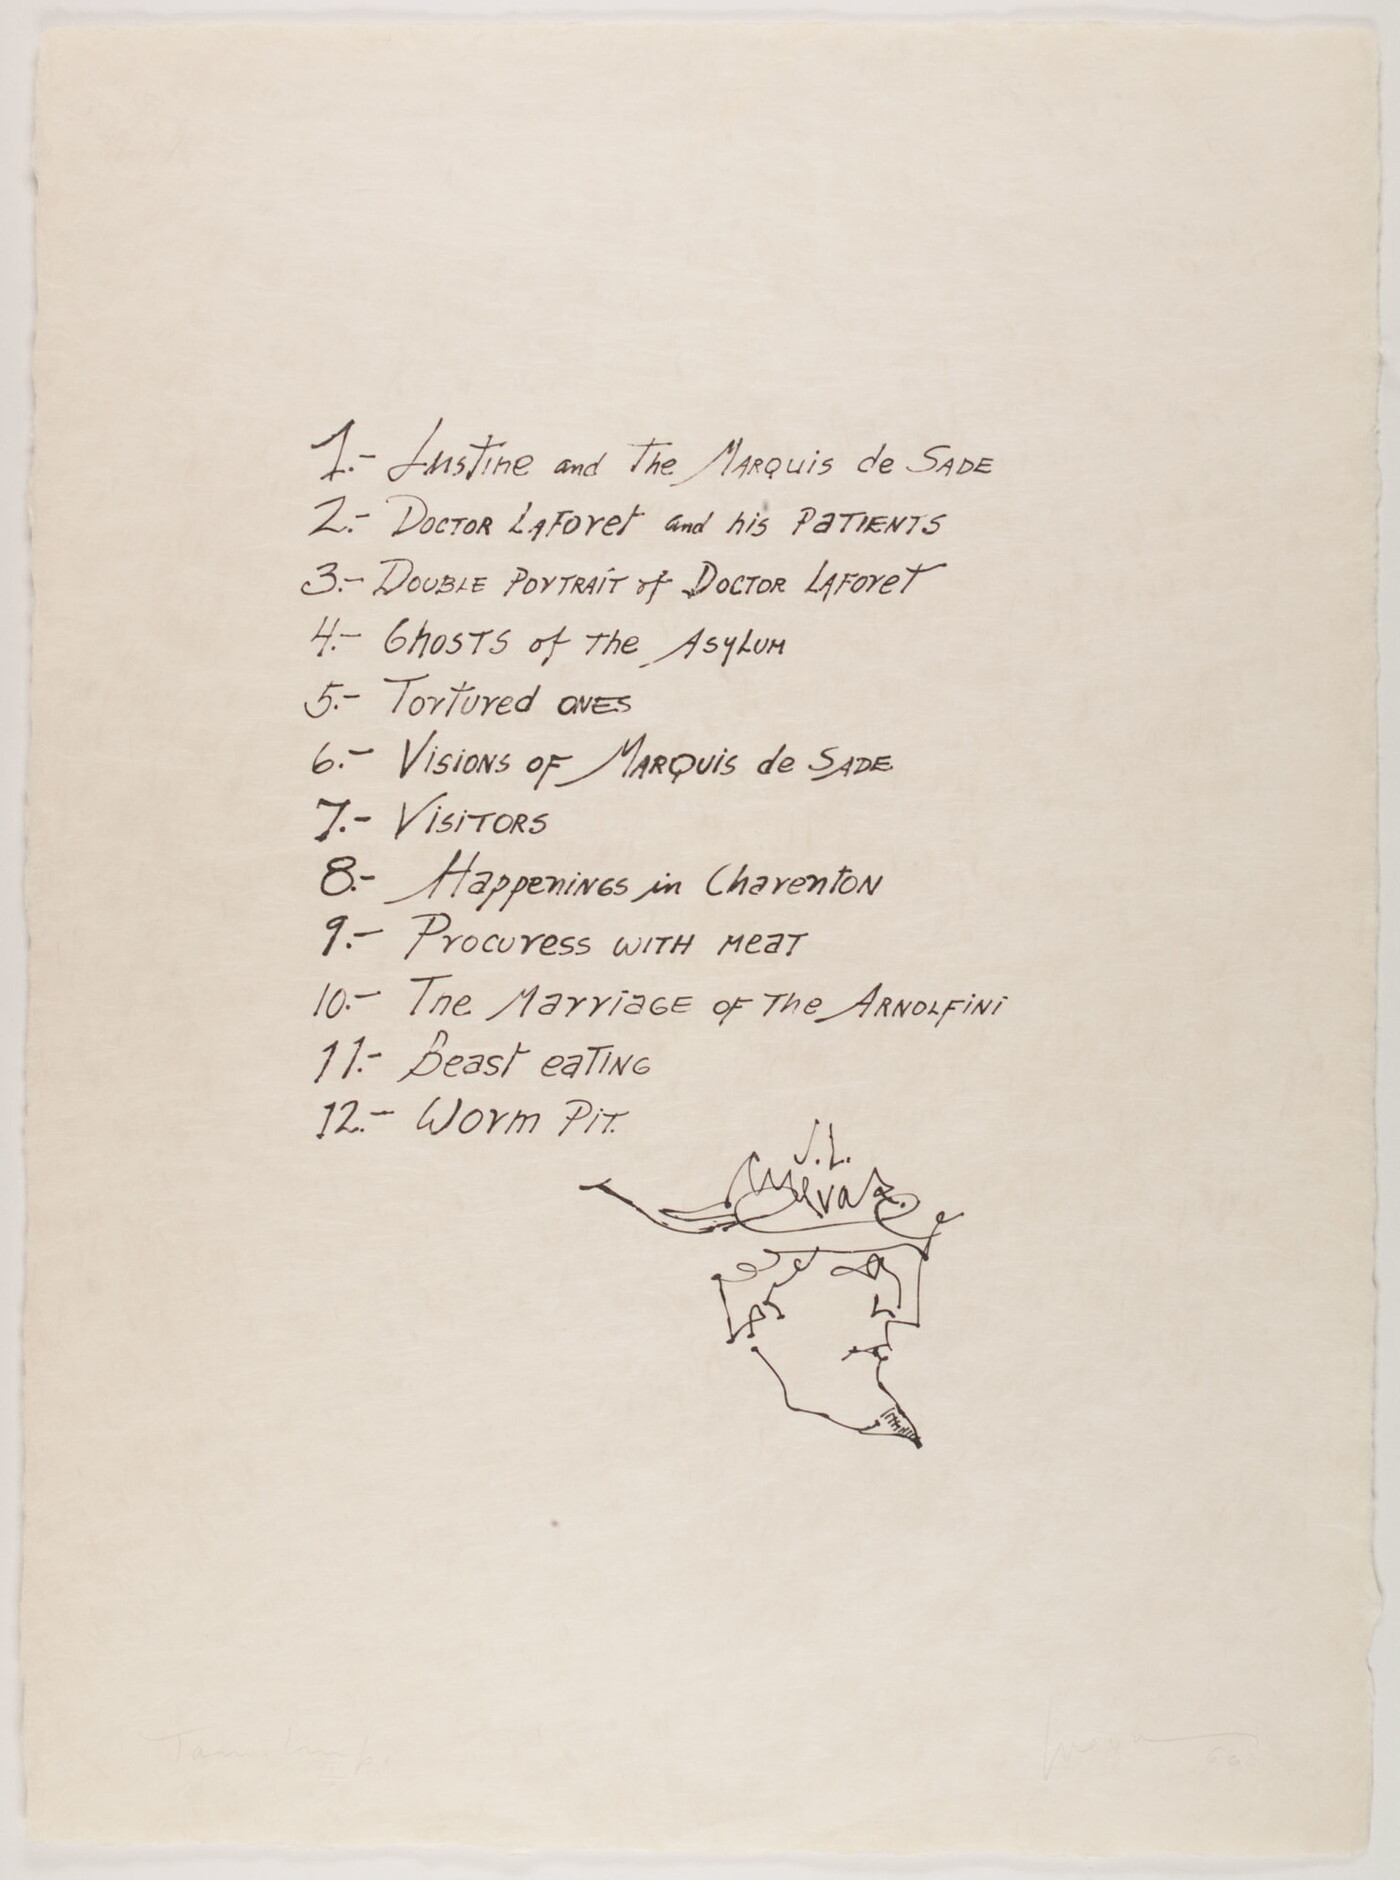 1.- Justine and the Marquis de Sade
2.- Doctor Laforet and his Patients
3.- Double Portrait of Doctor Laforet
4.- Ghosts of the Asylum
5.- Tortured ones
6.- Visions of Marquis de Sade
7.- Visitors
8.- Happenings in Charenton
9.- Procuress with meat
10.- The Marriage of the Arnolfini
11.- Beast eating
12.- Worm Pit.
J.L.
Cuevas.